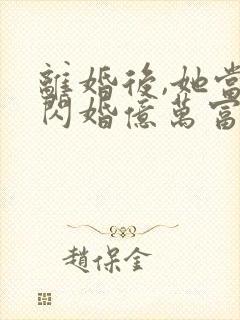 離婚後,她當
閃婚億萬富
趙保金